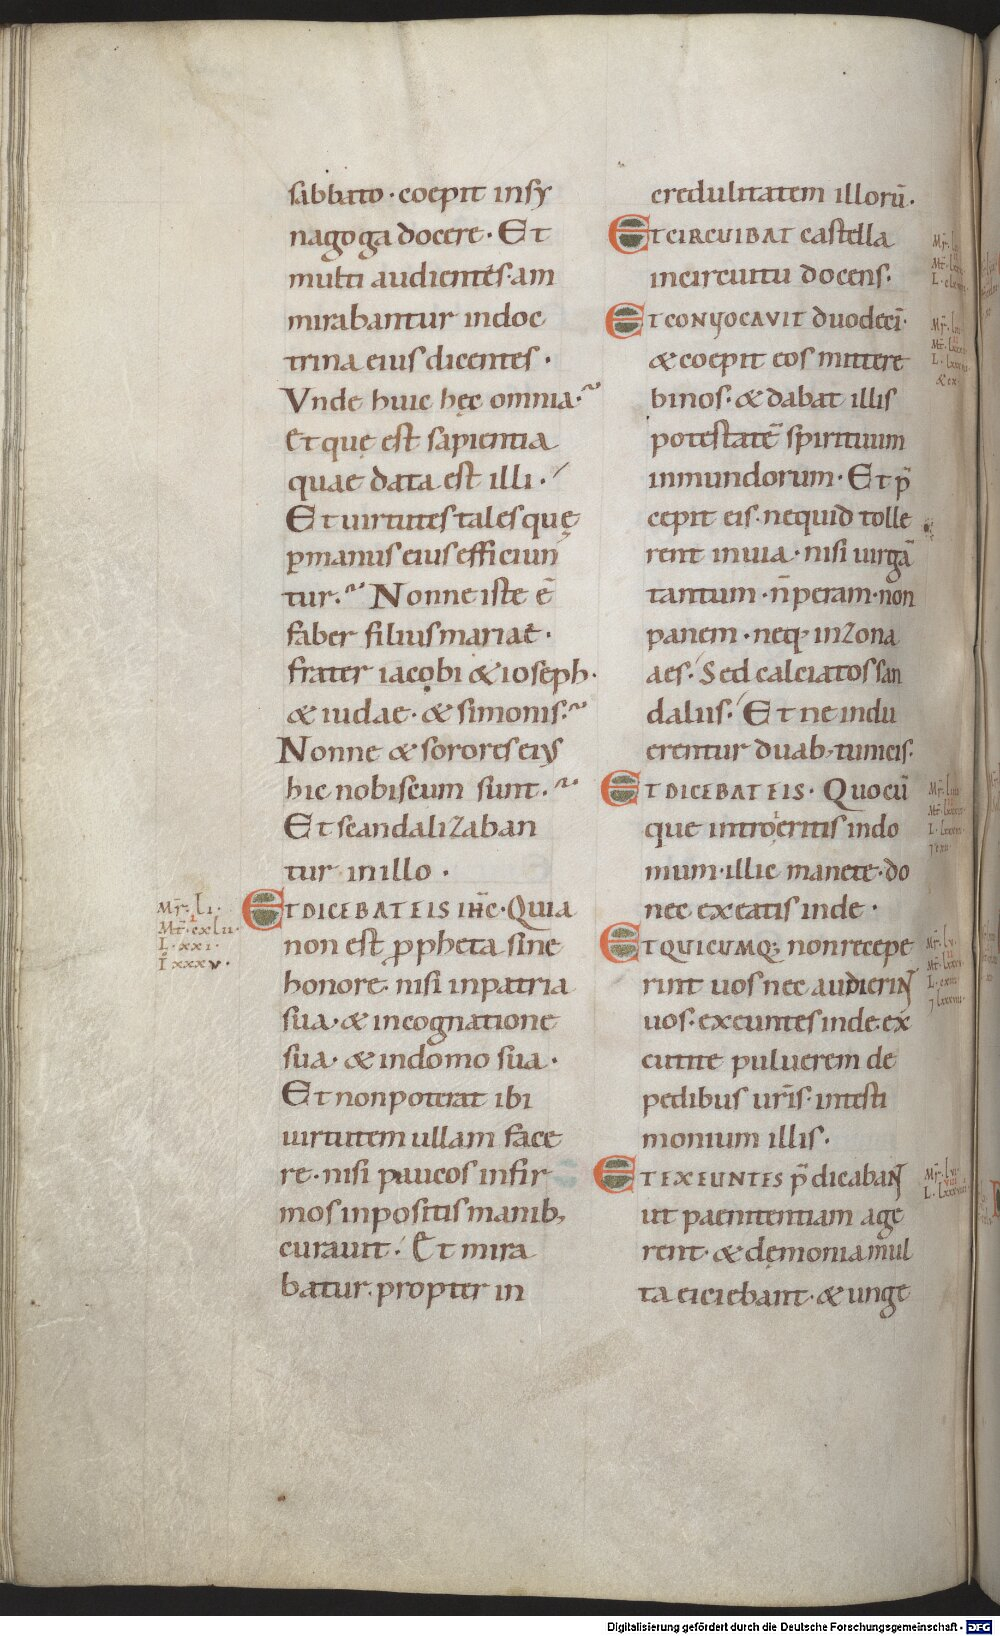 sabbato · coepit insy
nagoga docere · Et
multi audientes · am
mirabantur indoc
trina eius dicentes ·
Vnde huic hęc omnia ·
Et quę est sapientia
quae data est illi ·
Et uirtutes tales quę
ꝑmanus eius efficiun
tur · Nonne iste ē
faber filius mariae ·
frater iacobi & ioseph ·
& iudae · & simonis ·
Nonne & sorores eiꝰ
hic nobiscum sunt ·
Et scandalizaban
tur inillo ·
ET DICEBAT EIS IHC̄ · Quia
non est ꝓpheta sine
honore · nisi inpatria
sua · & incognatione
sua · & indomo sua ·
Et nonpoterat ibi
uirtutem ullam face
re · nisi paucos infir
mos inpositis manib;
curauit · Et mira
batur · propter in
Mr̄ · LI ·
Mt̄ · cxlii ·
L · xxi ·
Io xxxv ·
credulitatem illorū ·
ET CIRCUIBAT castella
incircuitu docens ·
ET CONVOCAVIT duodeci ·
& coepit eos mittere
binos · & dabat illis
potestatē spirituum
inmundorum · Et p̄
cepit eis · nequid tolle
rent inuia · nisi uirgā
tantum · n̄ peram · non
panem · neq; inzona
aes · Sed calciatos san
daliis · Et ne indu
erentur duab; tunicis ·
ET DICEBAT EIS · Quocū
que introieritis indo
mum · illic manete · do
nec exeatis inde ·
ET QUICUMQ; non recepe
rint uos nec audierint
uos · exeuntes inde · ex
cutite puluerem de
pedibus ur̄is · intesti
monium illis ·
ET EXEUNTES p̄dicabant
ut paenitentiam age
rent · & dęmonia mul
ta eiciebant · & unge
Digitalisierung gefördert durch die Deutsche Forschungsgemeinschaft - DFG